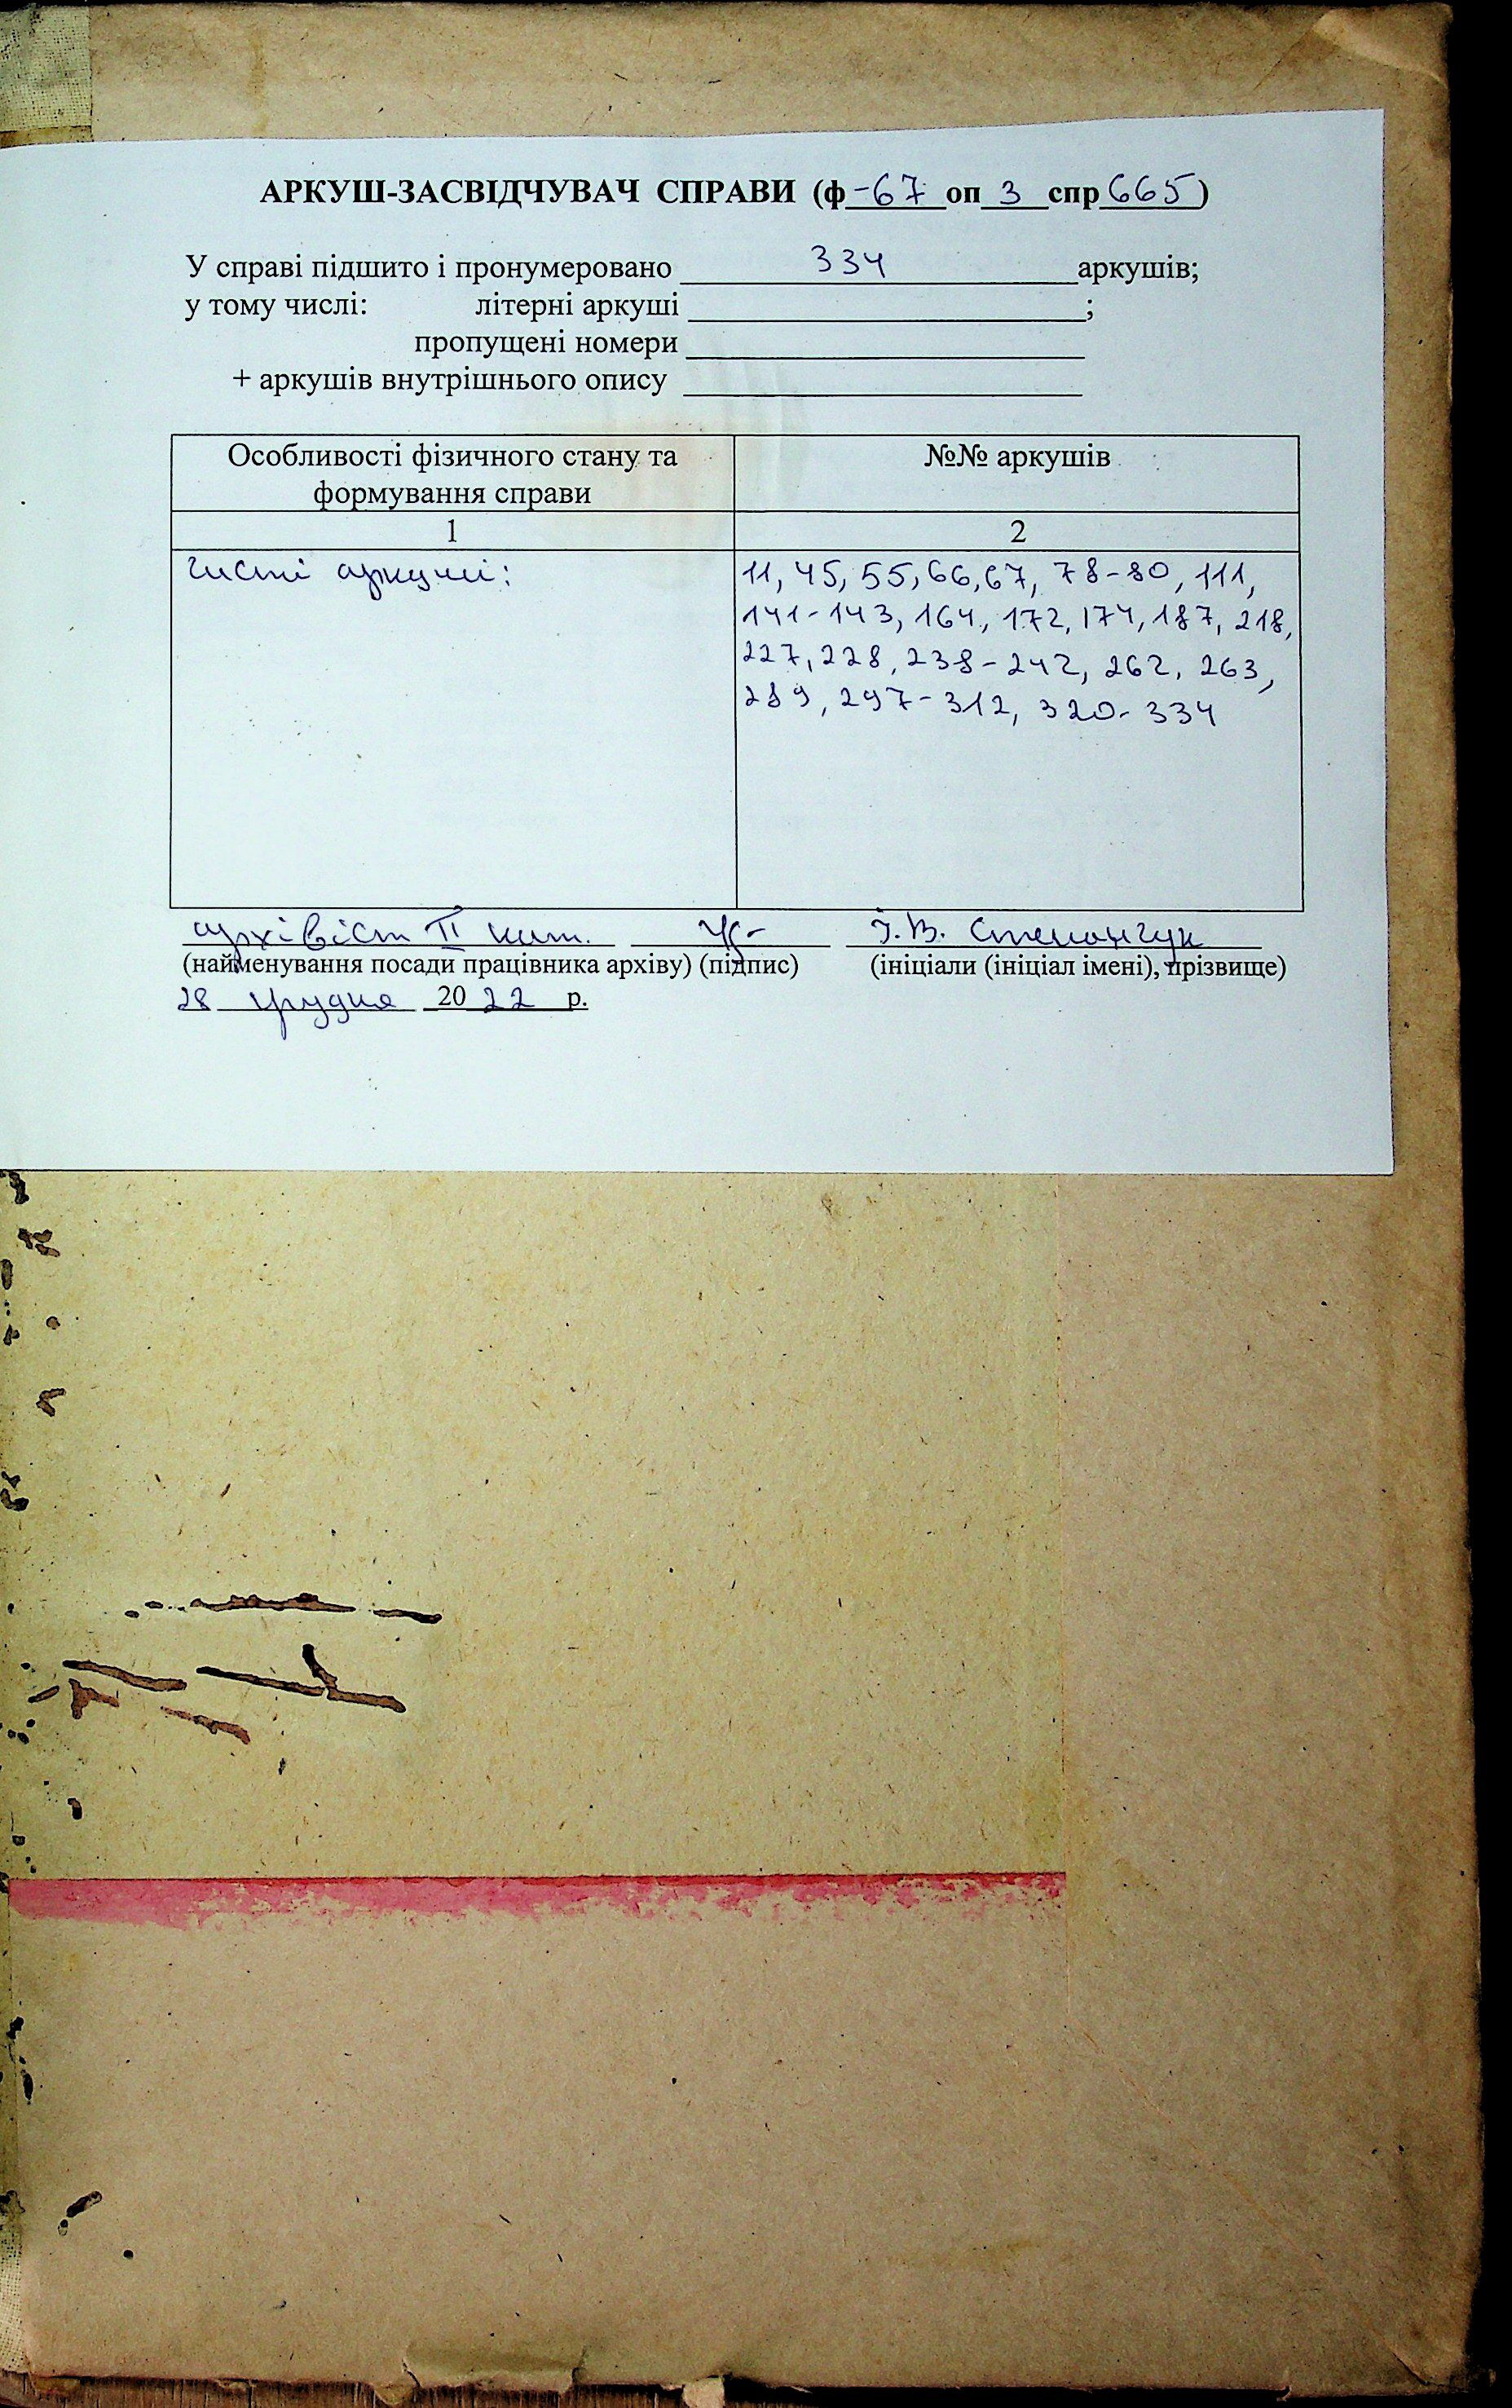 АРКУШ-ЗАСВІДЧУВАЧ СПРАВИ (ф -67 оп 3 спр 665)
У справі підшито і пронумеровано 334 аркушів;
у тому числі: літерні аркуші ;
пропущені номери
+ аркушів внутрішнього опису
Особливості фізичного стану та
формування справи
№№ аркушів
1 2
чисті аркуші:
11, 45, 55, 66, 67, 78-80, 111,
141-143, 164, 172, 174, 187, 218,
227, 228, 238-242, 262, 263,
289, 297-312, 320-334
архівіст II кат. І.В. Степанчук
(найменування посади працівника архіву) (підпис) (ініціали (ініціал імені), прізвище)
28 грудня 2022 р.